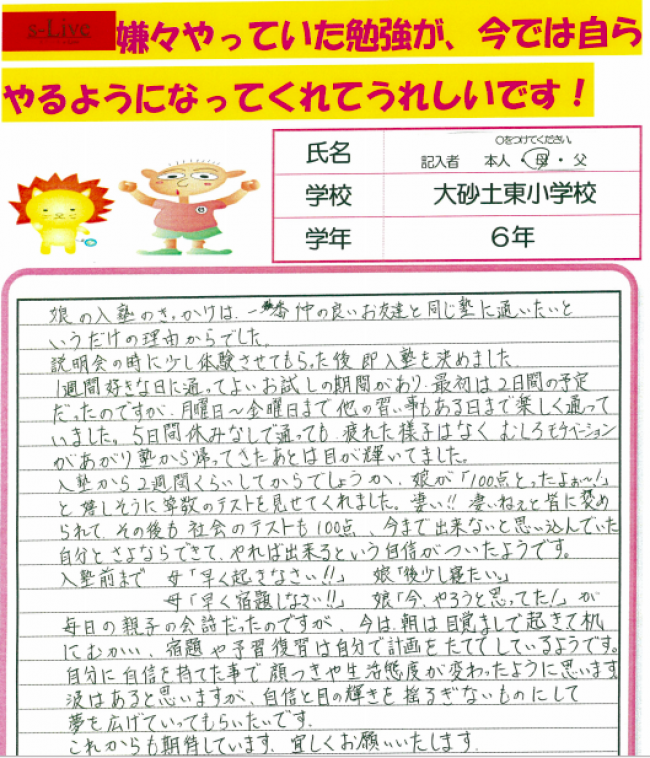 s-Live
嫌々やっていた勉強が、今では自ら
やるようになってくれてうれしいです！
〇をつけてください。
氏名 記入者 本人・母・父
学校 大砂土東小学校
学年 6年
娘の入塾のきっかけは、一番仲の良いお友達と同じ塾に通いたいと
いうだけの理由からでした。
説明会の時に少し体験させてもらった後 即入塾を決めました
1週間好きな日に通ってよいお試しの期間があり、最初は2日間の予定
だったのですが、月曜日～金曜日まで他の習い事もある日まで楽しく通って
いました。5日間休みなしで通っても、疲れた様子はなく むしろモチベーション
があがり塾から帰ってきたあとは目が輝いてました。
入塾から2週間くらいしてからでしょうか、娘が「100点とったよぉ～！」
と嬉しそうに算数のテストを見せてくれました。凄い!! 凄いねぇと皆に褒め
られて、その後も社会のテストも100点、今まで出来ないと思い込んでいた
自分とさよならできて、やれば出来るという自信がついたようです。
入塾前まで 母「早く起きなさい!!」 娘「後少し寝たい。」
母「早く宿題しなさい!!」 娘「今、やろうと思ってた！」が
毎日の親子の会話だったのですが、今は、朝は目覚ましで起きて机
にむかい、宿題や予習復習は自分で計画をたててしているようです。
自分に自信を持てた事で顔つきや生活態度が変わったように思います
波はあると思いますが、自信と目の輝きを揺るぎないものにして
夢を広げていってもらいたいです。
これからも期待しています。宜しくお願いいたします。